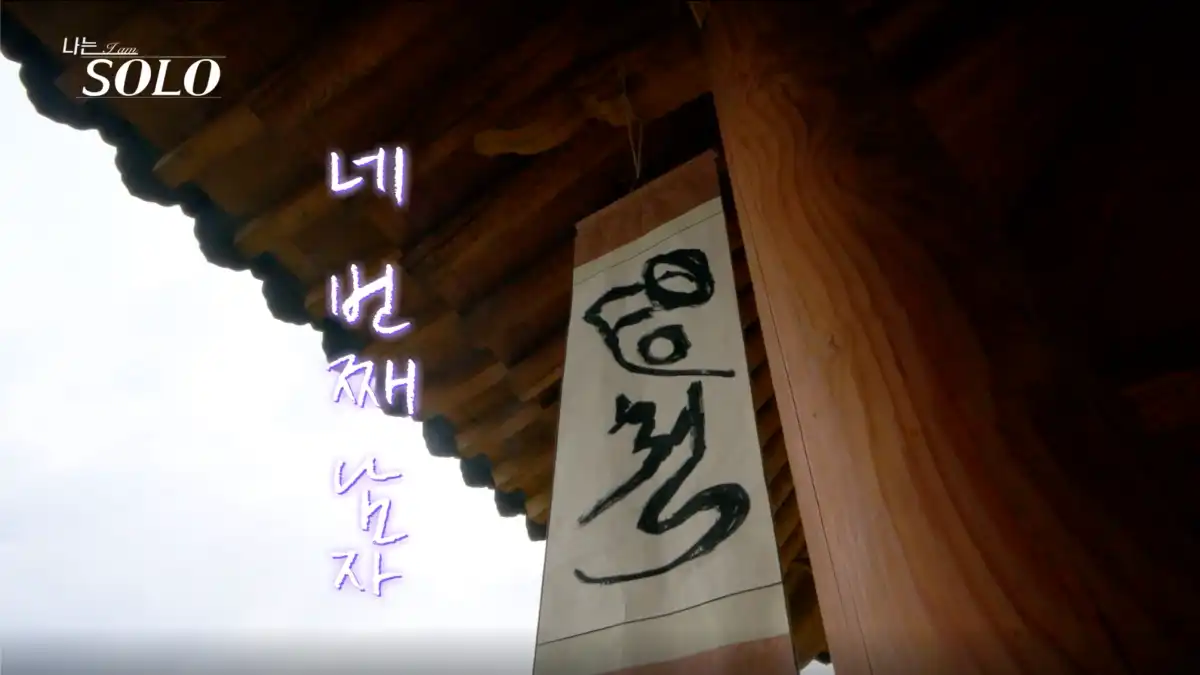 나는 I am
SOLO
네
번
째
남
자
영철